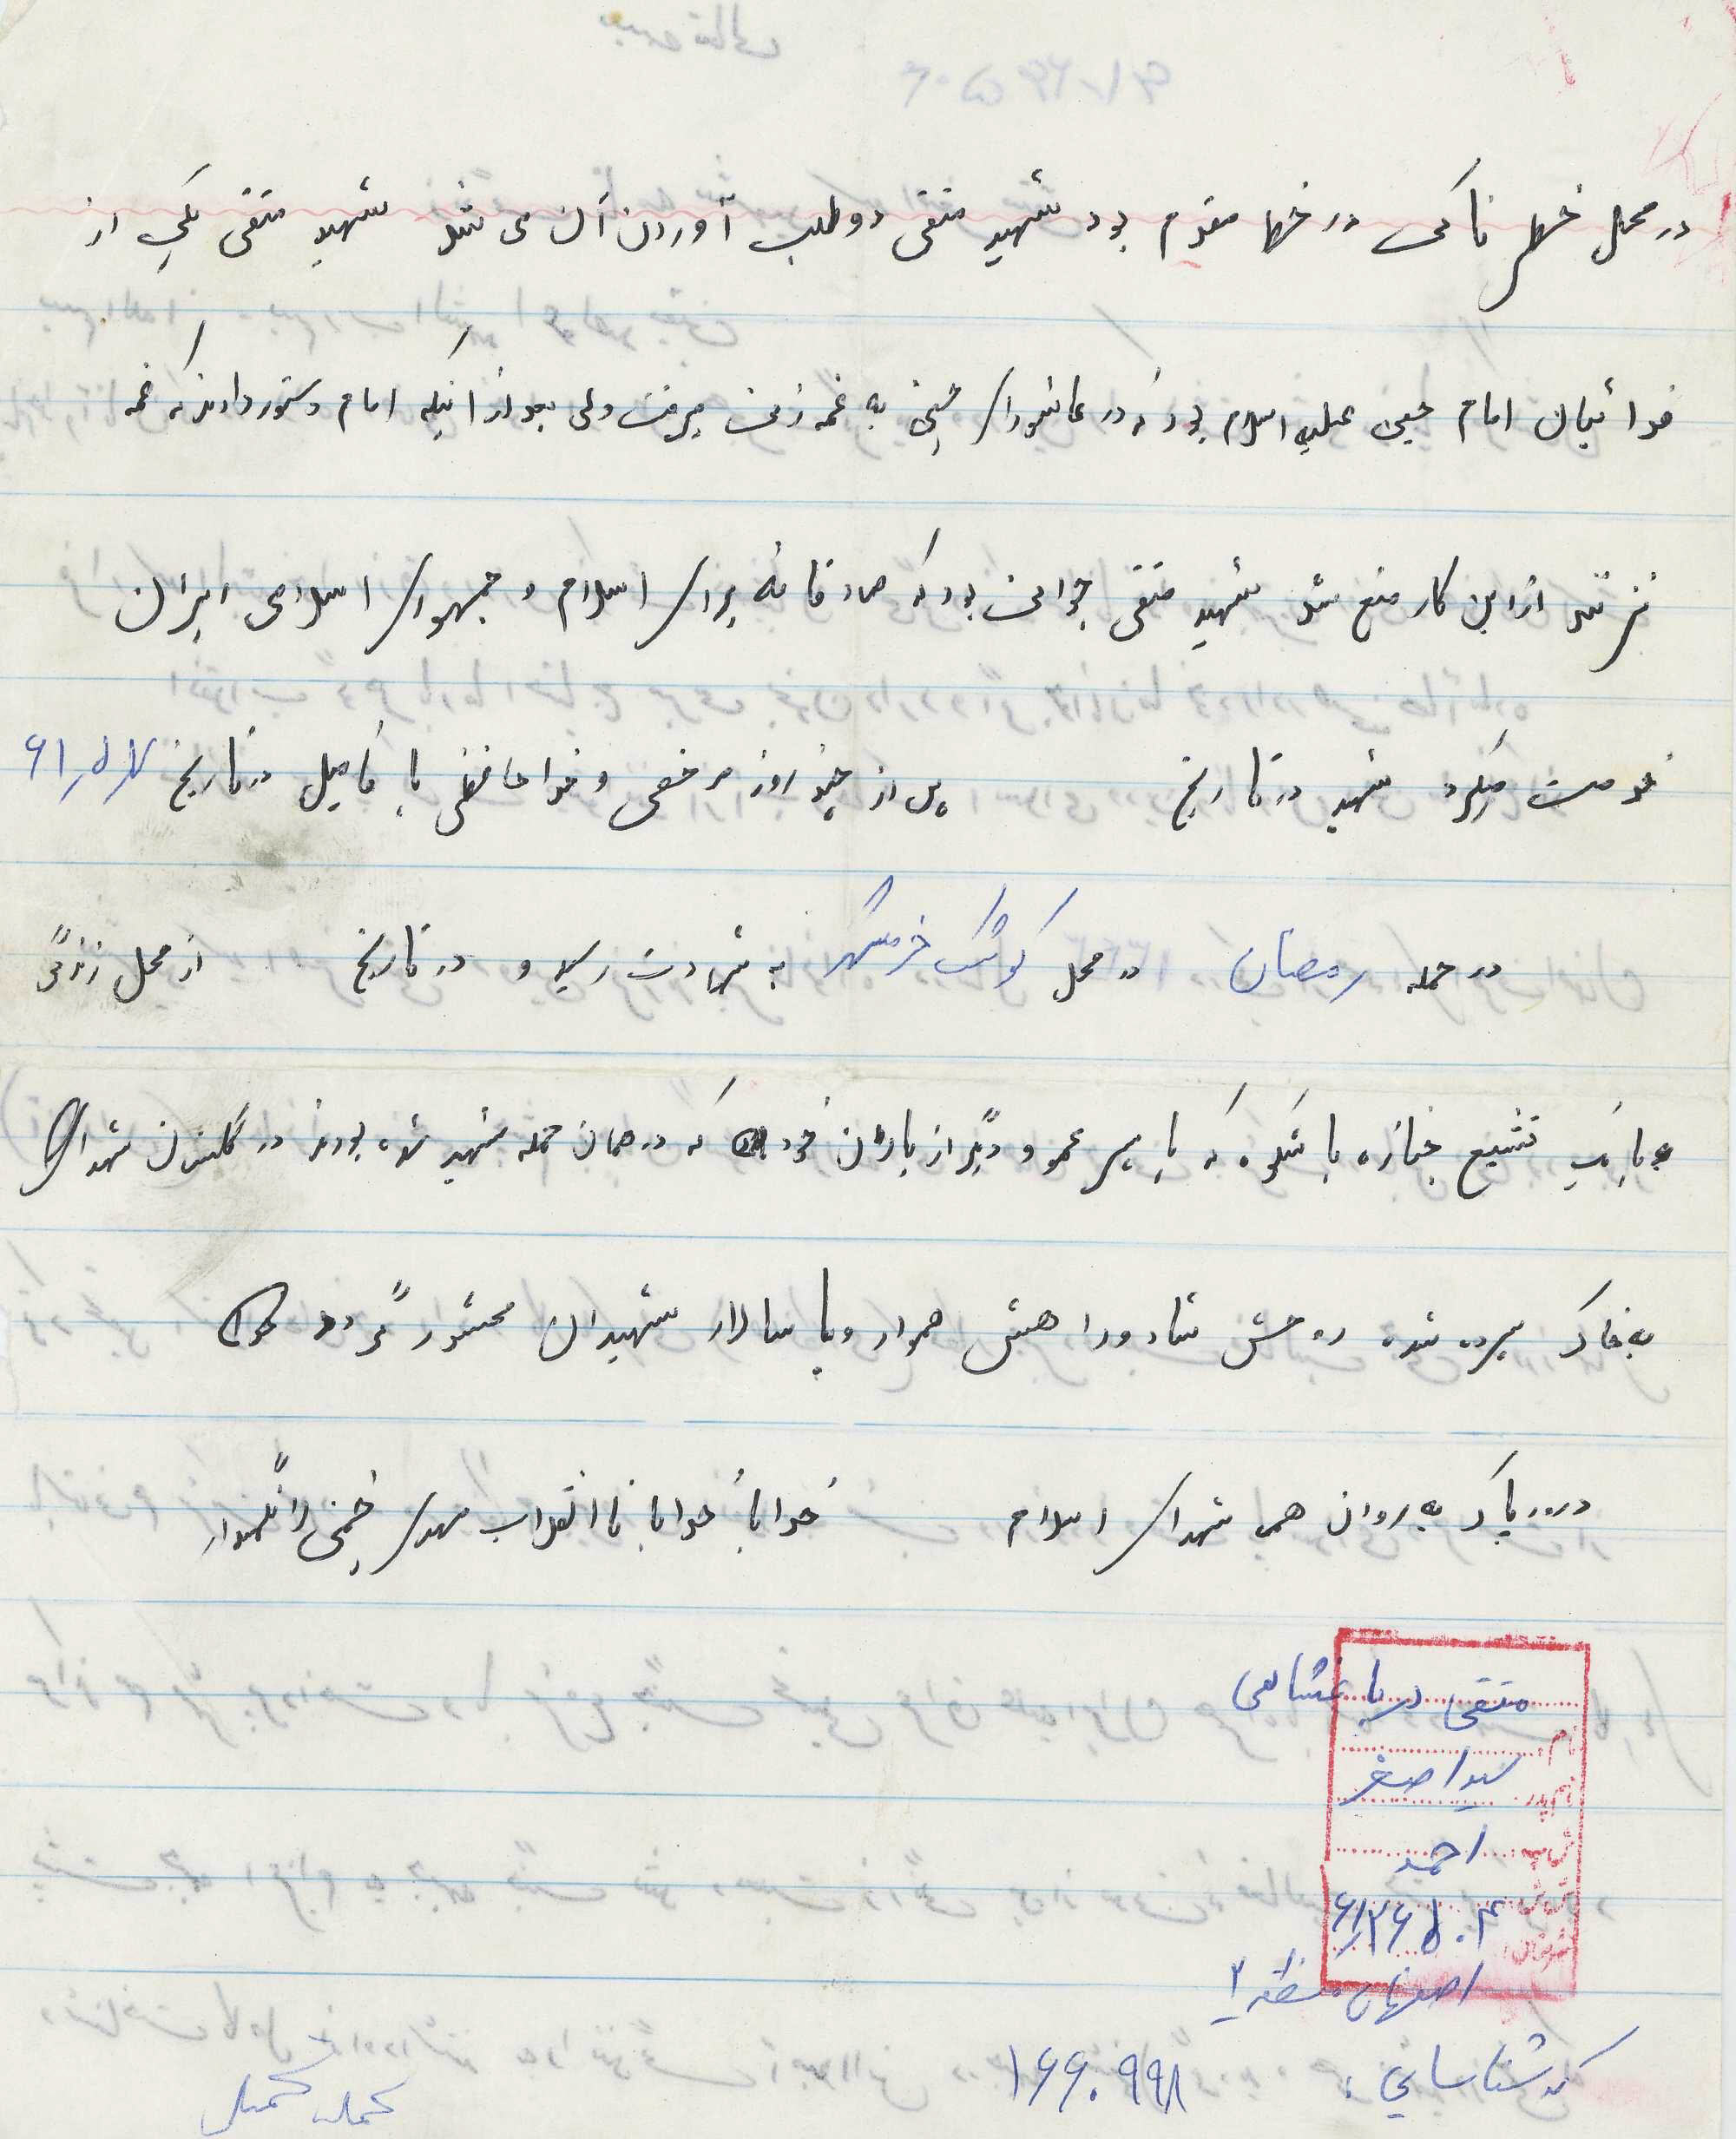 در محل خطرناکی در خط مقدم بود شهید متقی دوطلب آوردن آن می شد شهید متقی یکی از
فدائیان امام حسین علیه اسلام بود که در عاشورای حسینی به غمه زنی میرفت ولی بعد از اینکه امام دستور دادند که غمه
نزنند از این کار منع شد شهید متقی جوانی بود که صادقانه برای اسلام و جمهوری اسلامی ایران
خدمت میکرد شهید در تاریخ پس از چند روز مرخصی و خداحافظی با فامیل در تاریخ ۶۱٫۵٫۷
در حمله رمضان در محل کوشک خرمشهر به شهادت رسید و در تاریخ از محل زندگی
با یک تشیع جنازه با شکوه که با پسر عمو و دیگر از یاران خود که در همان حمله شهید شده بودند در گلستان شهدای
به خاک سپرده شد، روحش شاد و راهش هموار و با سالار شهیدان محشور گردد
درود پاک به روان همه شهدای اسلام خدایا خدایا تا انقلاب مهدی خمینی را نگهدار
متقی دریاغشاهی
نام
سید اصغر
نام پدر
احمد
ش پ
۶۱۲۶۵۰۴
اصفهان منطقه ۲
کد شناسایی : ۱۶۶۰۹۹۸